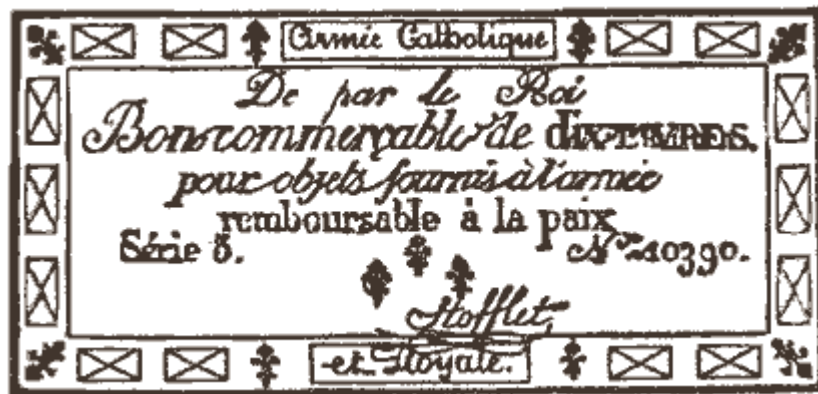 Armée Catholique
De par le Roi
Bon commerçable de DIX LIVRES.
pour objets fournis à l'armée
remboursable à la paix
Série 5. N.º 10390.
Stofflet,
et Royale.